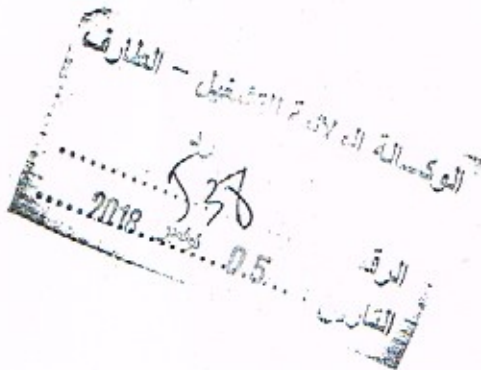 الوكالة الولائية للتشغيل - الطارف
الرقم 538
التاريخ 05 نوفمبر 2018